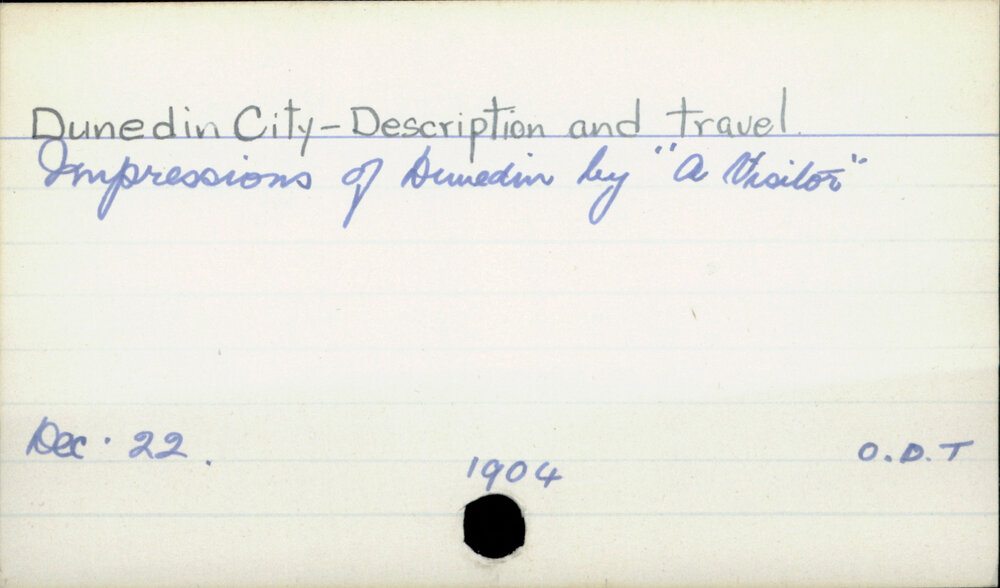 Dunedin City - Description and travel.
Impressions of Dunedin by "A Visitor"
Dec. 22.
1904
O.D.T